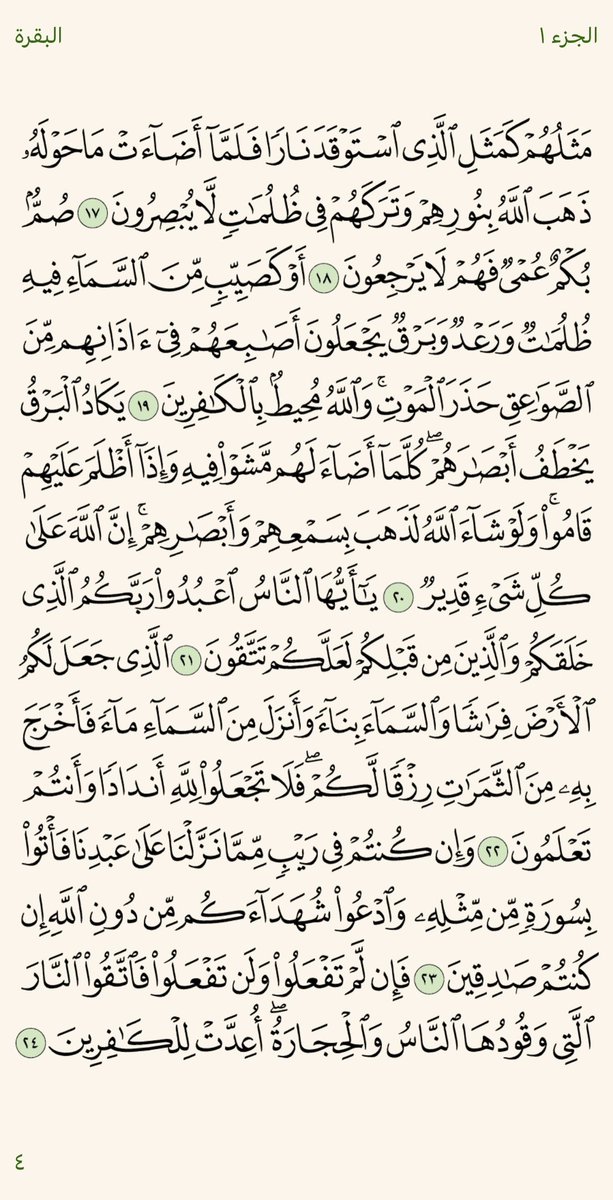 الجزء ١
البقرة
مَثَلُهُمۡ كَمَثَلِ ٱلَّذِي ٱسۡتَوۡقَدَ نَارٗا فَلَمَّآ أَضَآءَتۡ مَا حَوۡلَهُۥ
ذَهَبَ ٱللَّهُ بِنُورِهِمۡ وَتَرَكَهُمۡ فِي ظُلُمَٰتٖ لَّا يُبۡصِرُونَ ١٧ صُمُّۢ
بُكۡمٌ عُمۡيٞ فَهُمۡ لَا يَرۡجِعُونَ ١٨ أَوۡ كَصَيِّبٖ مِّنَ ٱلسَّمَآءِ فِيهِ
ظُلُمَٰتٞ وَرَعۡدٞ وَبَرۡقٞ يَجۡعَلُونَ أَصَٰبِعَهُمۡ فِيٓ ءَاذَانِهِم مِّنَ
ٱلصَّوَٰعِقِ حَذَرَ ٱلۡمَوۡتِۚ وَٱللَّهُ مُحِيطُۢ بِٱلۡكَٰفِرِينَ ١٩ يَكَادُ ٱلۡبَرۡقُ
يَخۡطَفُ أَبۡصَٰرَهُمۡۖ كُلَّمَآ أَضَآءَ لَهُم مَّشَوۡاْ فِيهِ وَإِذَآ أَظۡلَمَ عَلَيۡهِمۡ
قَامُواْۚ وَلَوۡ شَآءَ ٱللَّهُ لَذَهَبَ بِسَمۡعِهِمۡ وَأَبۡصَٰرِهِمۡۚ إِنَّ ٱللَّهَ عَلَىٰ
كُلِّ شَيۡءٖ قَدِيرٞ ٢٠ يَٰٓأَيُّهَا ٱلنَّاسُ ٱعۡبُدُواْ رَبَّكُمُ ٱلَّذِي
خَلَقَكُمۡ وَٱلَّذِينَ مِن قَبۡلِكُمۡ لَعَلَّكُمۡ تَتَّقُونَ ٢١ ٱلَّذِي جَعَلَ لَكُمُ
ٱلۡأَرۡضَ فِرَٰشٗا وَٱلسَّمَآءَ بِنَآءٗ وَأَنزَلَ مِنَ ٱلسَّمَآءِ مَآءٗ فَأَخۡرَجَ
بِهِۦ مِنَ ٱلثَّمَرَٰتِ رِزۡقٗا لَّكُمۡۖ فَلَا تَجۡعَلُواْ لِلَّهِ أَندَادٗا وَأَنتُمۡ
تَعۡلَمُونَ ٢٢ وَإِن كُنتُمۡ فِي رَيۡبٖ مِّمَّا نَزَّلۡنَا عَلَىٰ عَبۡدِنَا فَأۡتُواْ
بِسُورَةٖ مِّن مِّثۡلِهِۦ وَٱدۡعُواْ شُهَدَآءَكُم مِّن دُونِ ٱللَّهِ إِن
كُنتُمۡ صَٰدِقِينَ ٢٣ فَإِن لَّمۡ تَفۡعَلُواْ وَلَن تَفۡعَلُواْ فَٱتَّقُواْ ٱلنَّارَ
ٱلَّتِي وَقُودُهَا ٱلنَّاسُ وَٱلۡحِجَارَةُۖ أُعِدَّتۡ لِلۡكَٰفِرِينَ ٢٤
٤